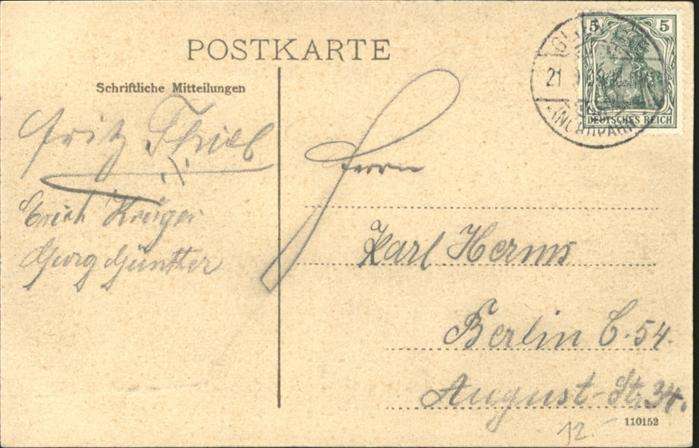 POSTKARTE
Schriftliche Mitteilungen
5 5
DEUTSCHES REICH
21
Fritz
Erich Krüger
Georg Günther
Herrn
Karl Herms
Berlin C. 54.
August-Str. 34.
110152
12